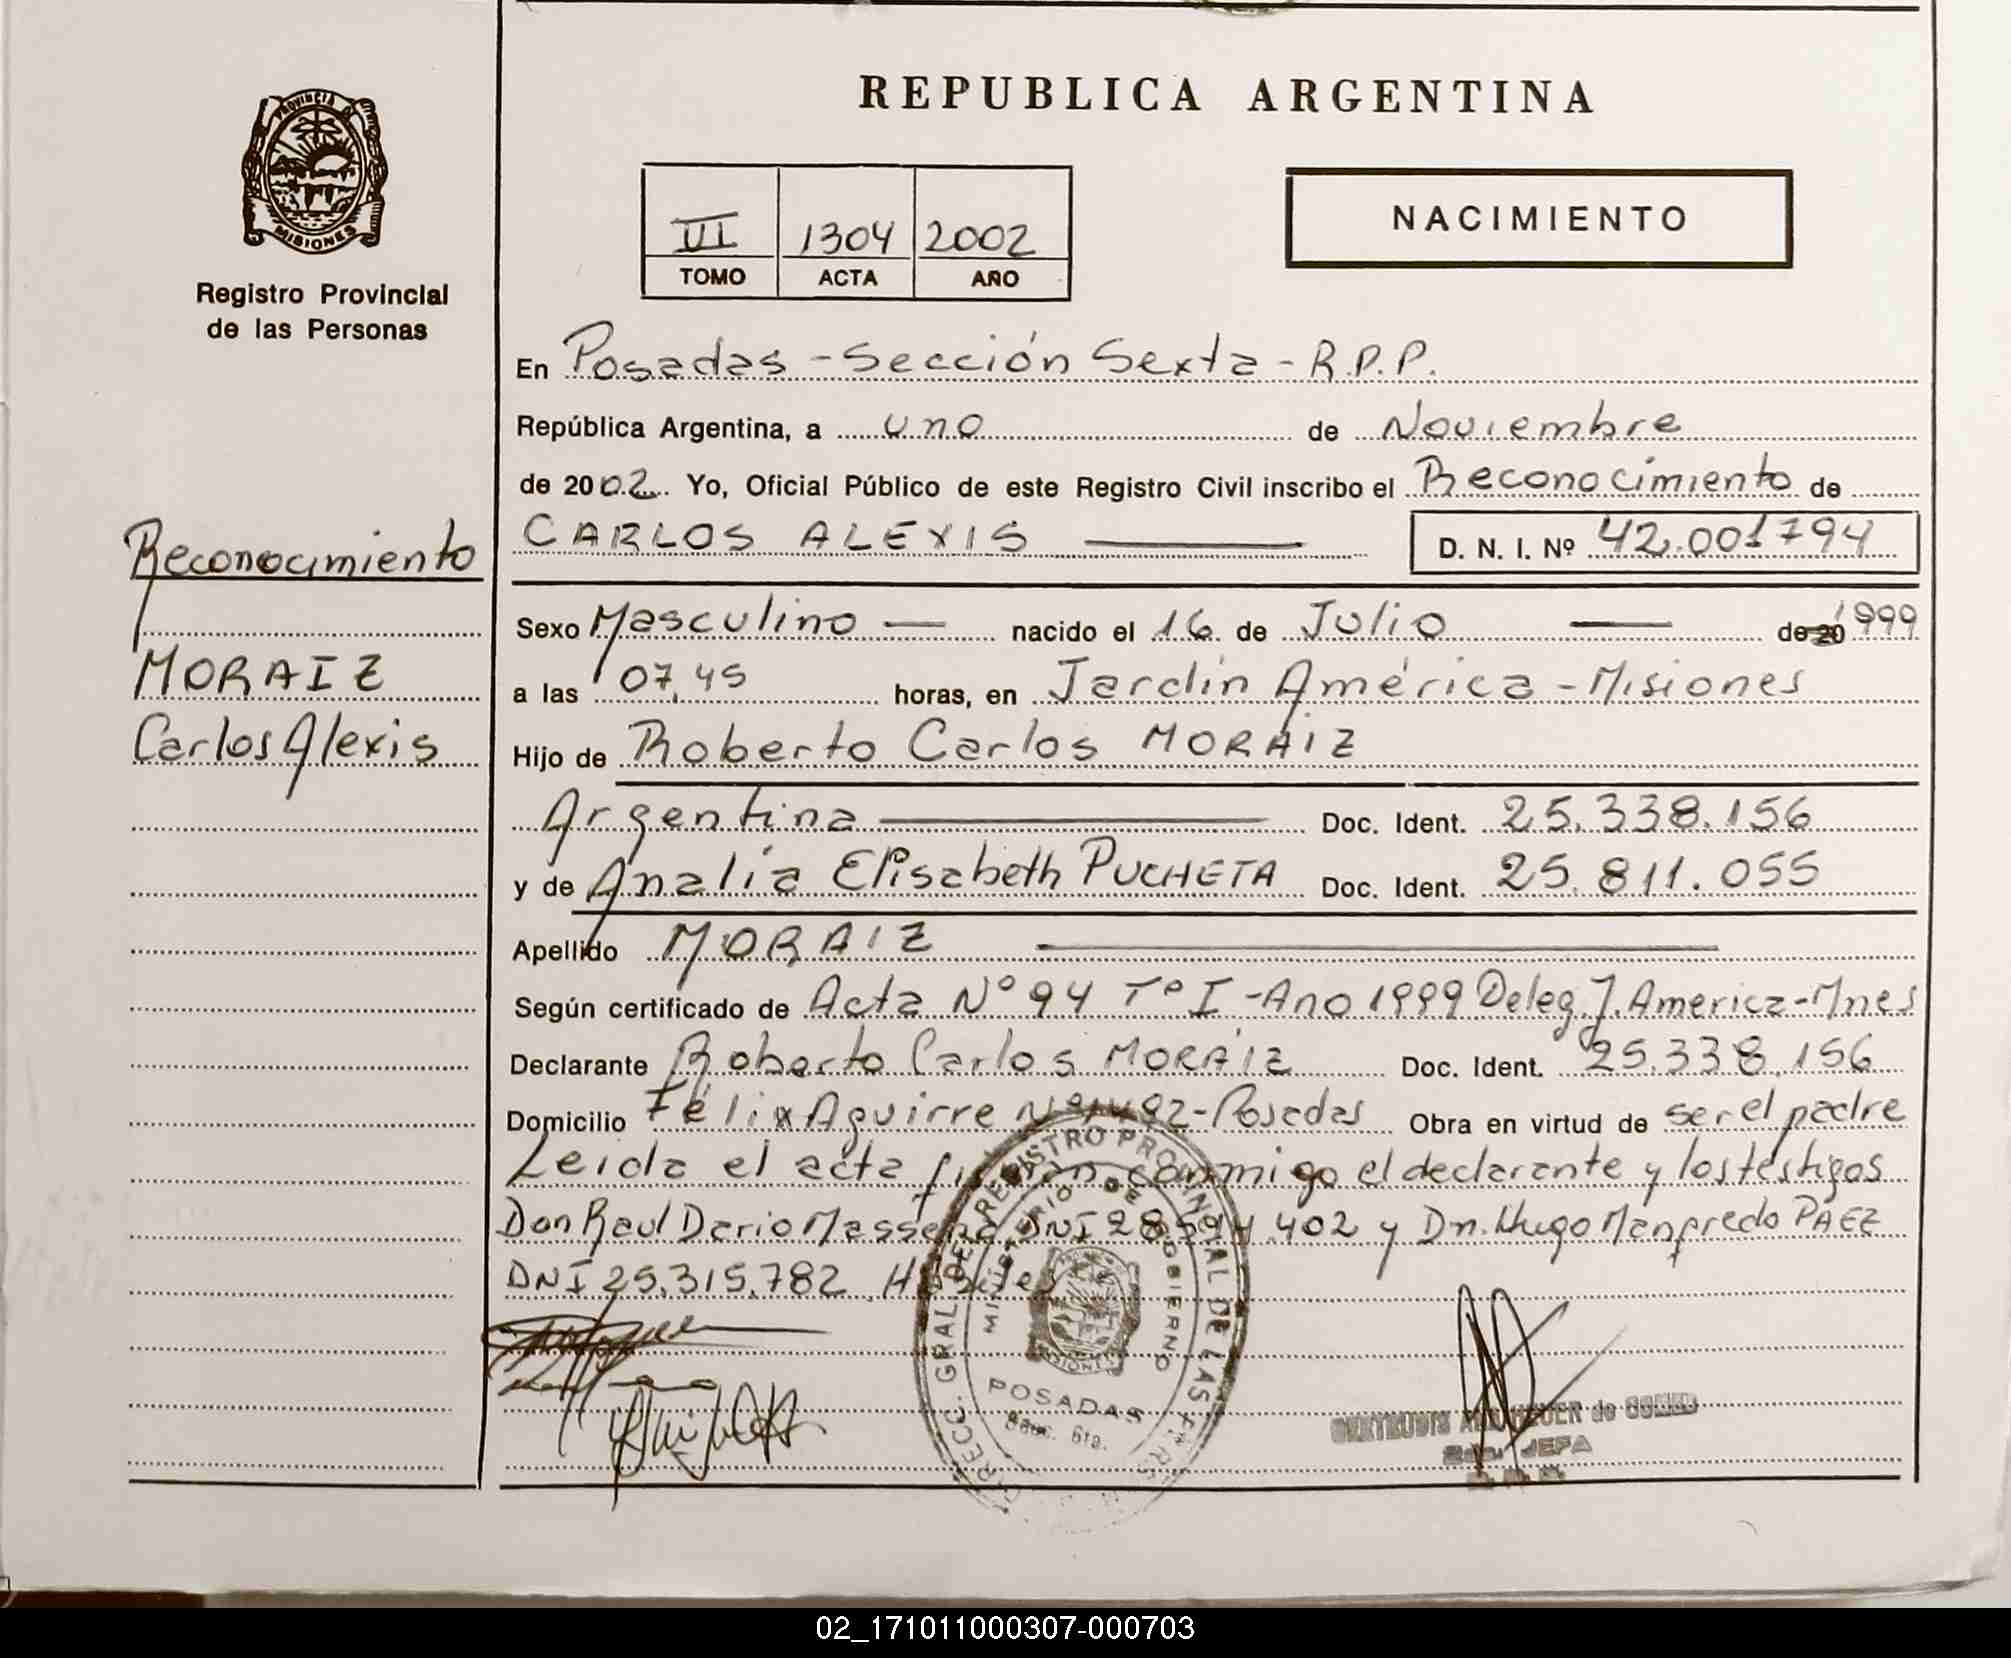 REPUBLICA ARGENTINA
PROVINCIA DE
MISIONES
Registro Provincial
de las Personas
VI 1304 2002
TOMO ACTA AÑO
NACIMIENTO
En Posadas - Sección Sexta - R.P.P.
República Argentina, a uno de Noviembre
de 2002. Yo, Oficial Público de este Registro Civil inscribo el Reconocimiento de
CARLOS ALEXIS D. N. I. Nº 42.001794
Reconocimiento
MORAIZ
Carlos Alexis
Sexo Masculino nacido el 16 de Julio de 20 1999
a las 07,45 horas, en Jardín América - Misiones
Hijo de Roberto Carlos MORAIZ
Argentina Doc. Ident. 25.338.156
y de Analía Elisabeth PUCHETA Doc. Ident. 25.811.055
Apellido MORAIZ
Según certificado de Acta Nº 94 Tº I - Ano 1999 Deleg. J. America - Mnes
Declarante Roberto Carlos MORAIZ Doc. Ident. 25.338.156
Domicilio Félix Aguirre Nº 1492 - Posadas Obra en virtud de ser el padre
Leida el acta firman conmigo el declarante y los testigos
Don Raul Dario DNI 28 402 y Dn. Hugo Manfredo PAEZ
DNI 25.315.782
DIRECC. GRAL. DE REGISTRO PROVINCIAL DE LAS PERS
MINISTERIO DE GOBIERNO
MISIONES
POSADAS
Secc. 6ta.
de
JEFA
02_171011000307-000703